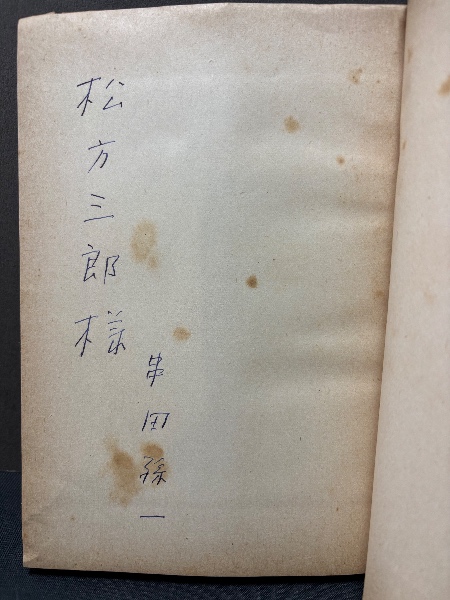 松方三郎様
串田孫一